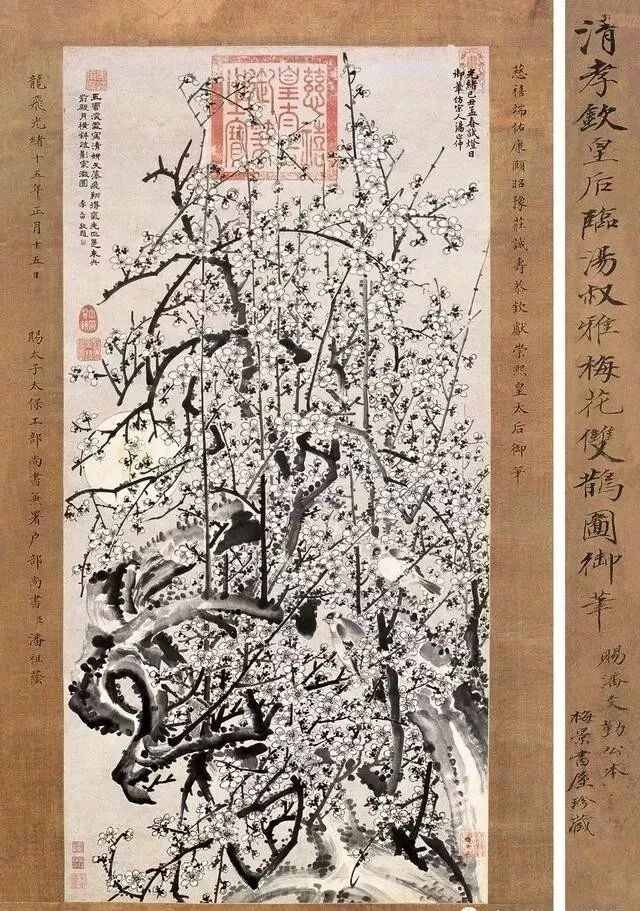 清孝欽皇后臨湯叔雅梅花雙鵲圖御筆
賜潘文勤公本
梅景書屋珍藏
慈禧端佑康頤昭豫莊誠壽恭欽獻崇熙皇太后御筆
光緒己丑孟春試燈日
御筆仿宋人湯正仲
慈禧
皇太后
寫清妍天藻飛翔得氣先
前殿月橫斜疏影
敬題
龍飛光緒十五年正月十五日
賜太子太保工部尚書兼署户部尚書臣潘祖蔭